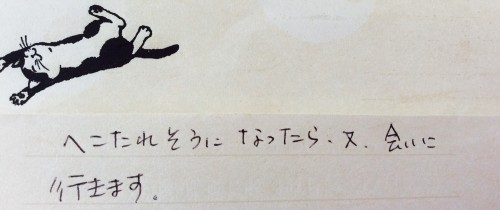 へこたれそうになったら、又、会いに
行きます。